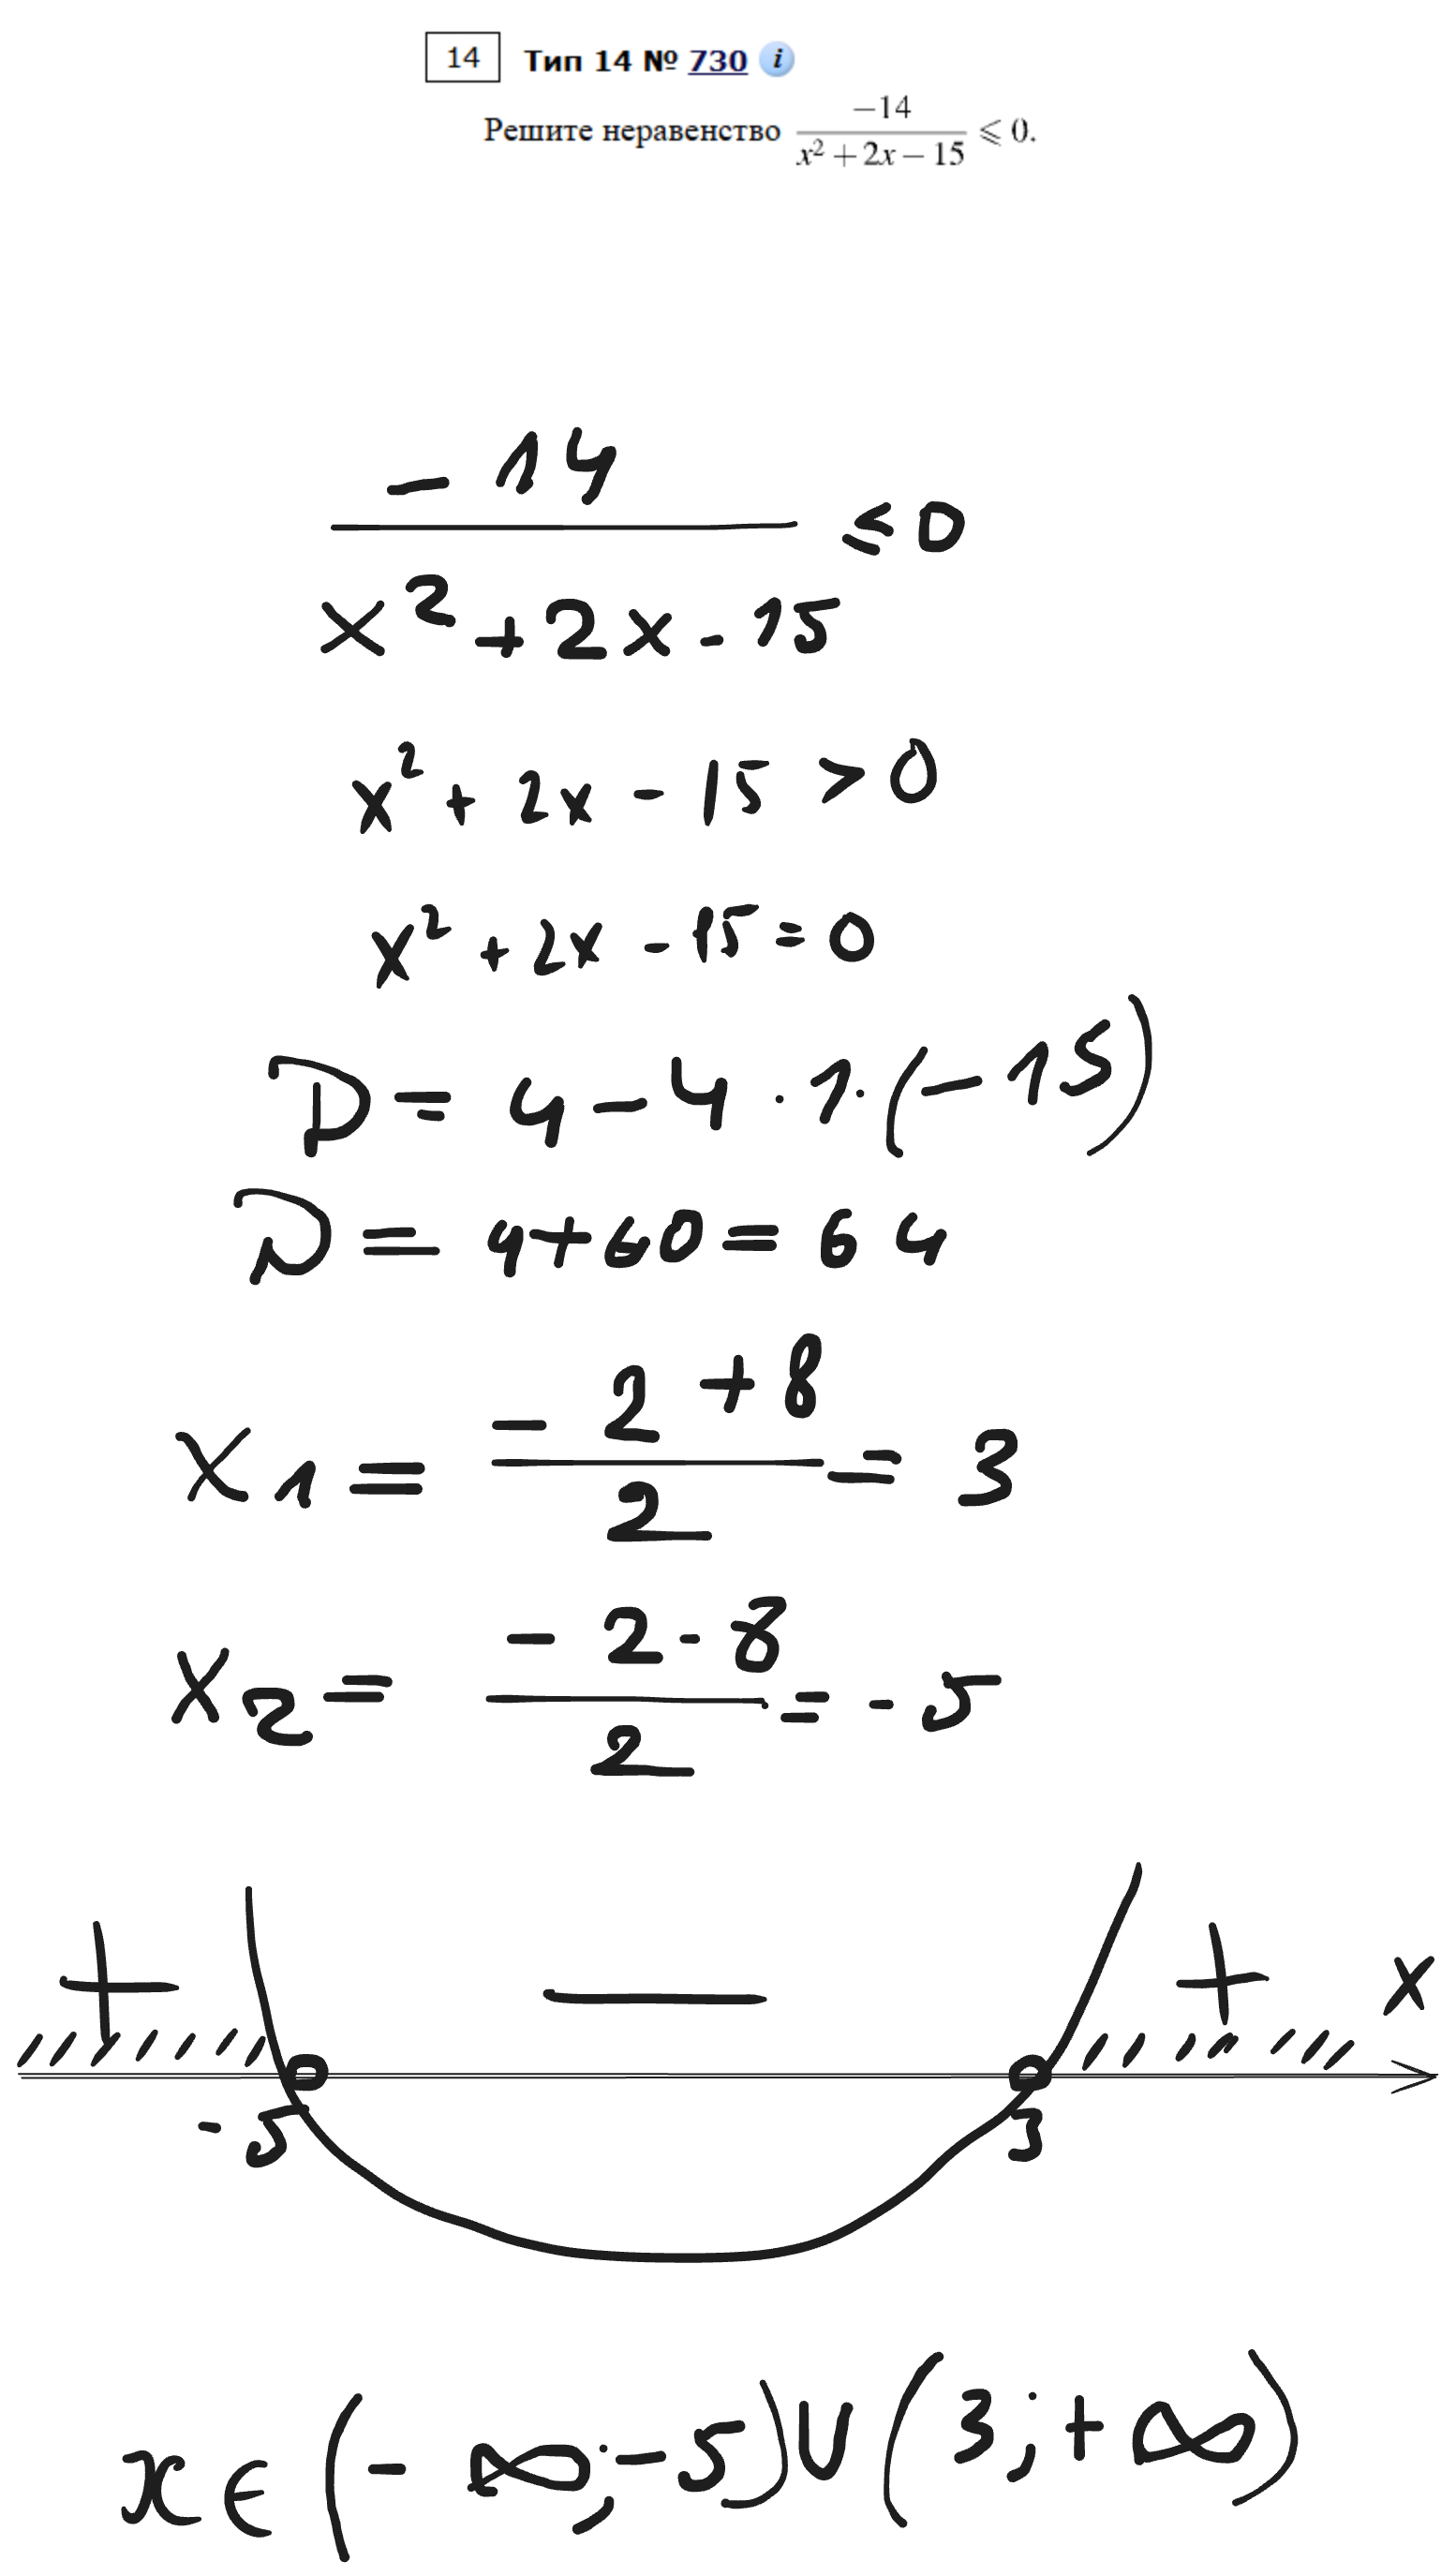 14 Тип 14 № 730 i
Решите неравенство \frac{-14}{x^2+2x-15} ⩽ 0.
\frac{-14}{x^2+2x-15} ≤ 0
x^2 + 2x - 15 > 0
x^2 + 2x - 15 = 0
D = 4 - 4 · 1 · (-15)
D = 4 + 60 = 64
x_1 = \frac{-2+8}{2} = 3
x_2 = \frac{-2-8}{2} = -5
+ — + x
-5 3
x ∈ (-∞; -5) ∪ (3; +∞)